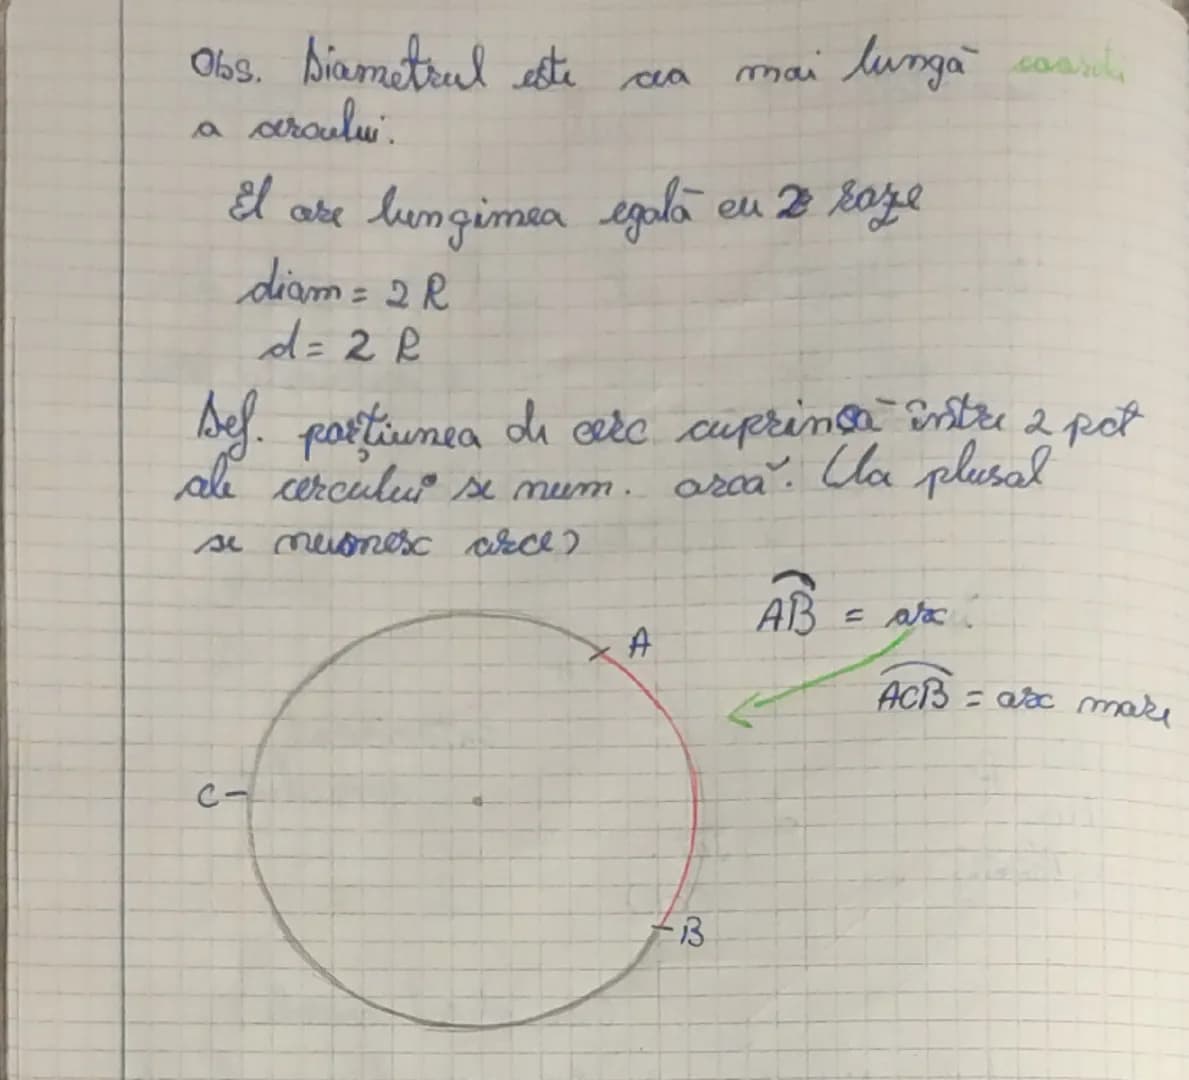 Obs. Diametrul este cea mai lungă coardă
a cercului.
El are lungimea egală cu 2 raze
diam = 2 R
d = 2 R
Def. porțiunea de cerc cuprinsă între 2 pct
ale cercului se num. arcă. (la plural
se numesc arce)
A
AB = arc
ACB = arc mare
C
B